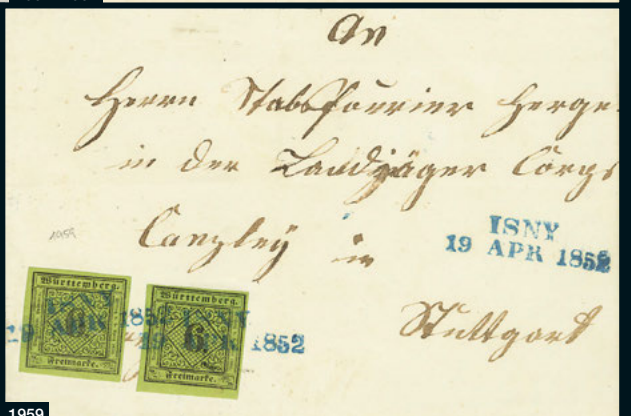 An
Herrn Stabsfourrier Herge
in der Landjäger Corps
Canzley in
Stuttgart
ISNY
19 APR 1852
1959
Württemberg.
6
Freimarke.
ISNY
19 APR 1852
Württemberg.
6
Freimarke.
ISNY
19 APR 1852
1959